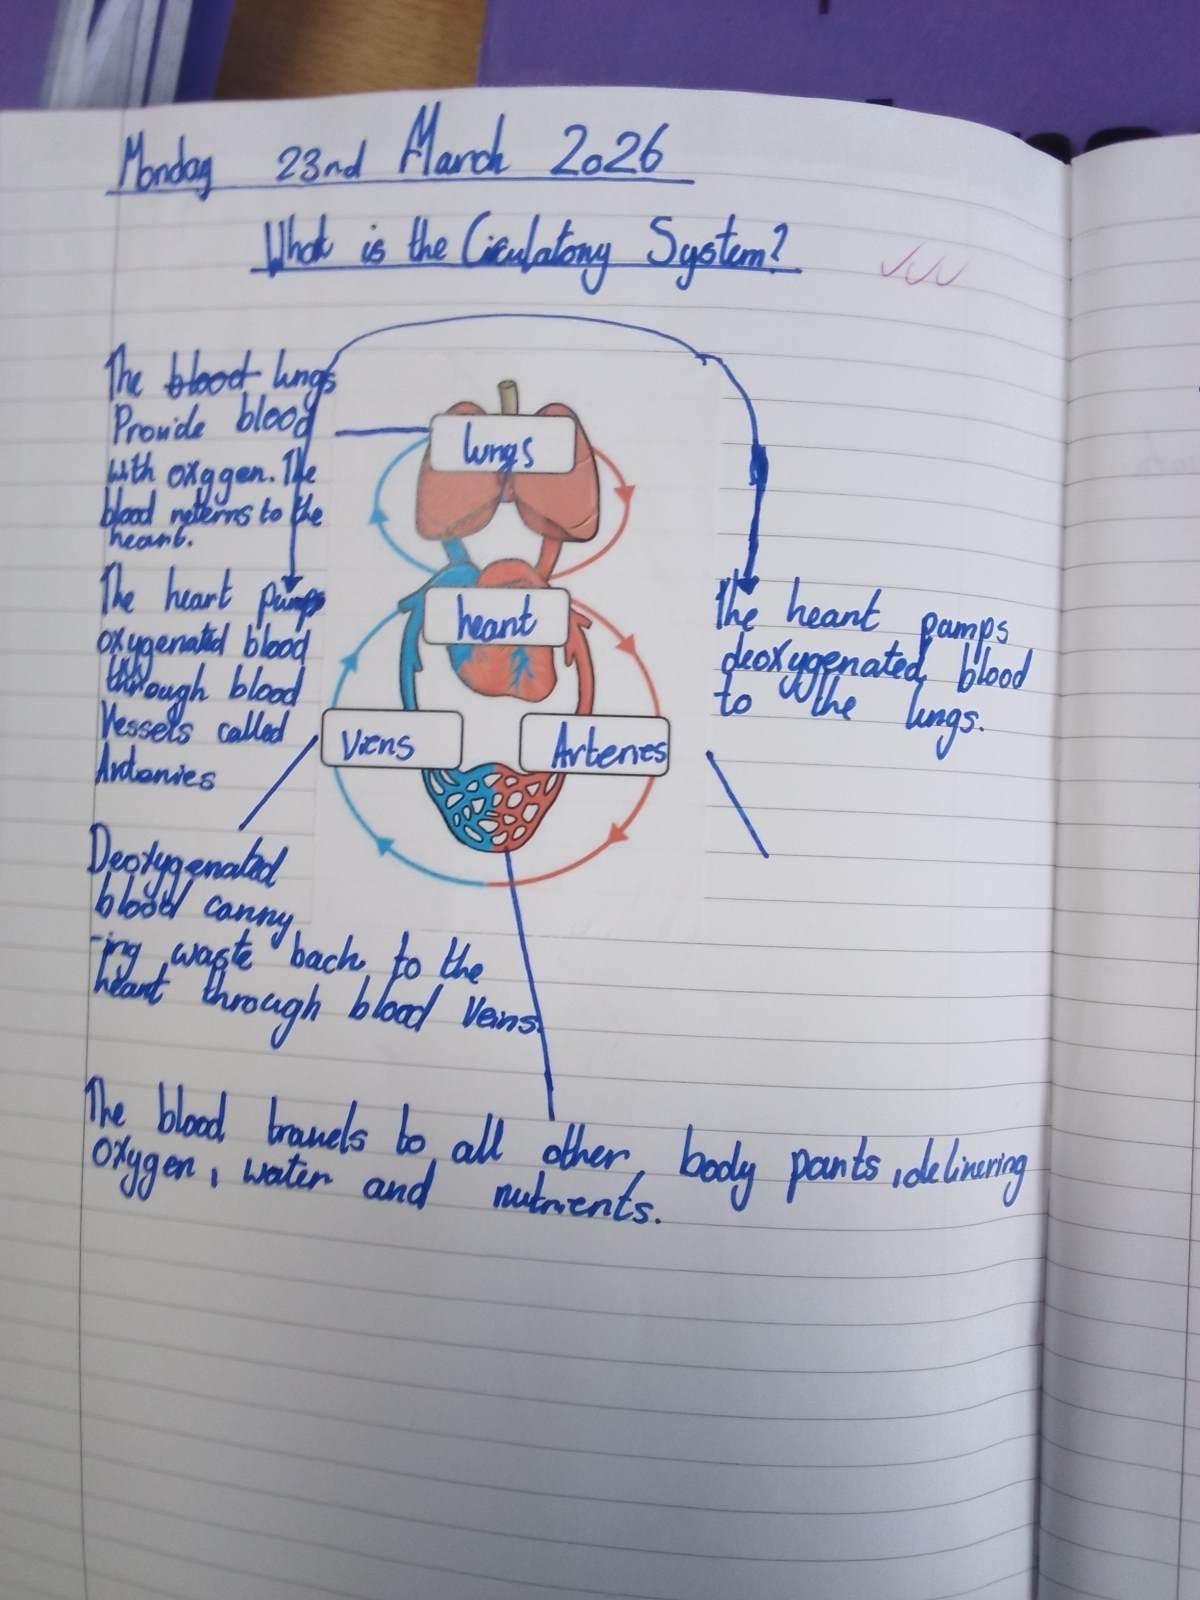 Monday 23nd March 2026
What is the Ciculatory System?
The blood lungs
Provide blood
with oxygen. The
blood reterns to the
heart.
lungs
The heart pumps
oxygenated blood
through blood
Vessels called
Arteries
heart
The heart pamps
deoxygenated blood
to the lungs.
Viens
Arteries
Deoxygenated
blood carry
-ing waste back to the
heart through blood Veins.
The blood travels to all other body parts, delivering
oxygen, water and nutrients.